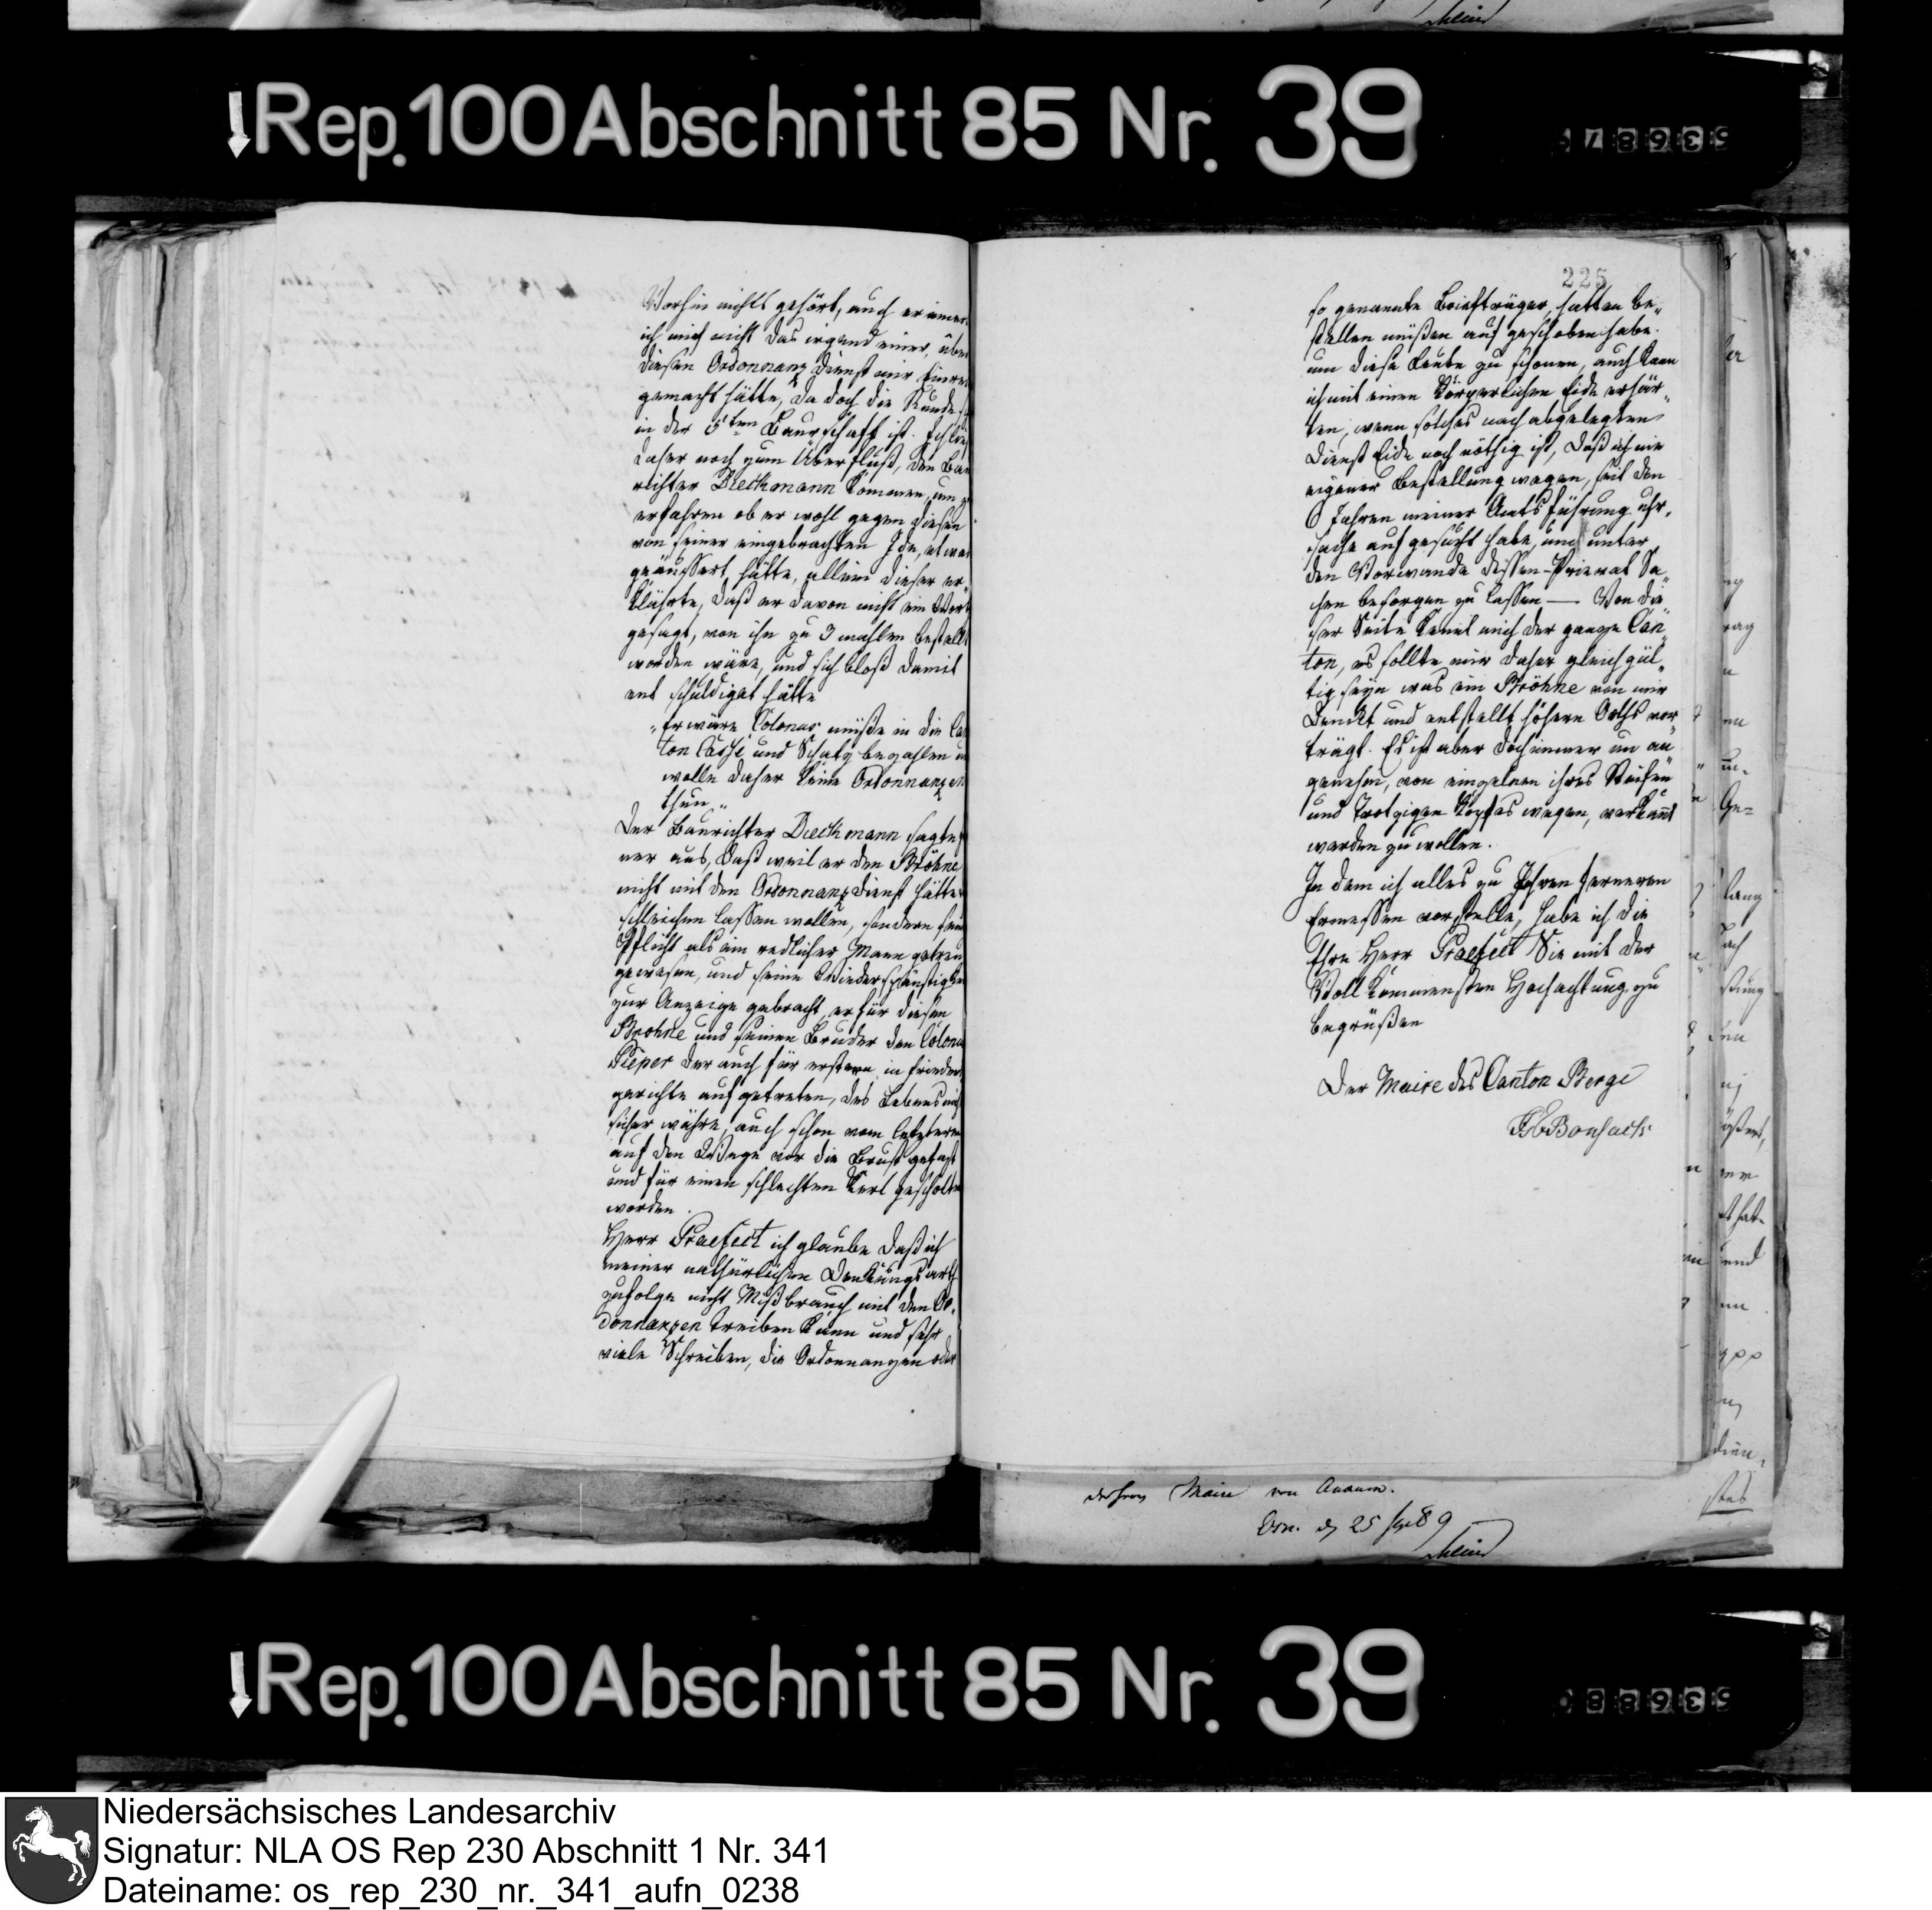 Rep. 100 Abschnitt 85 Nr. 39
Vorhin nichts gehört, auch erinner
ich mich nicht das irgend einer, über
diesen Ordonnanz Dienst mir Einre
gemacht hätte, da doch die Runde
in der 5ten Baurschaft ist. Ich lies
daher noch zum Überfluß, den Bau
richter Dieckmann kommen, um zu
erfahren ob er wohl gegen diesen
von seiner eingebrachten etwas
geäussert hätte, allein dieser er
klährte, daß er davon nicht ein Wort
gesagt, von ihn zu 3 mahlen bestellt
worden wäre, und sich bloß damit
ent schuldiget hätte
„Er wäre Colonus müße in die Can
ton Casse und Schatz bezahlen u
wolle daher keine Ordonnanzen
thun„
Der Baurichter Dieckmann sagte
ner aus, daß weil er den Bröhne
nicht mit den Ordonnanz dienst hätte
schleichen lassen wollen, sondern sein
Pflicht als ein redlicher Mann getreu
gewesen, und seine Wiederspänstigkei
zur Anzeige gebracht, er für diesen
Brohne und seinen Bruder den Colonus
Pieper der auch für erstern in Frieden
gerichte auf getreten, des Lebens nich
sicher währe, auch schon vom letztern
auf den Wege vor die Brust gefast
und für einen schlechten Kerl gescholten
worden.
Herr Praefect ich glaube daß ich
meiner nathürlichen Denkungs arth
zufolge nicht Mißbrauch mit den Or-
donnanzen treiben kann und sehr
viele Schreiben, die Ordonnanzen oder
225
so genannte Briefträger, hätten be„
stellen müßen auf geschoben habe.
um diese Leute zu schonen, auch kann
ich mit einen körperlichen Eide erhär„
ten, wenn solches nach abgelegten
Dienst Eide noch nöthig ist, daß ich nie
eigener Bestellung wegen, seit den
6 Jahren meiner Amts führung uhr„
sache auf gesucht habe, um unter
den Vorwande dessen Privat Sa„
chen besorgen zu lassen — Von die„
ser Seite kennt mich der ganze Can„
ton, es sollte mir daher gleich gül„
tig seyn was ein Bröhne von mir
denckt und entstellt höhern Orths vor
trägt. Es ist aber doch immer un an„
genehm, von einzelnen ihres Steifen
und Trotzigen Kopfes wegen, verkannt
werden zu wollen.
In dem ich alles zu Ihren ferneren
Ermessen vorstelle, habe ich die
Ehre Herr Praefect Sie mit der
Vollkommensten Hochachtung zu
begrüßen
Der Maire des Canton Berge
Bonsack
Maire von Ankum.
Osn. d 25 89
Rep. 100 Abschnitt 85 Nr. 39
Niedersächsisches Landesarchiv
Signatur: NLA OS Rep 230 Abschnitt 1 Nr. 341
Dateiname: os_rep_230_nr._341_aufn_0238